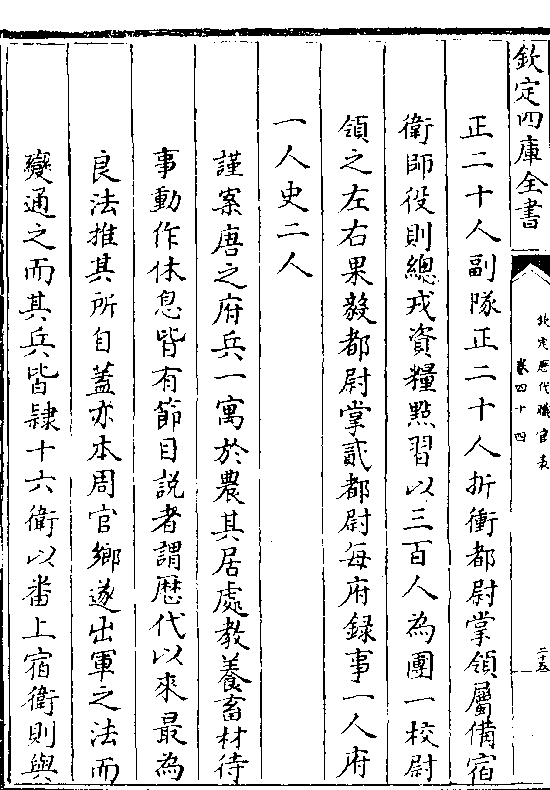 欽定四庫全書
欽定歷代職官表
卷四十四
正二十人副隊正二十人折衝都尉掌領屬備宿
衛師役則總戎資糧點習以三百人為團一校尉
領之左右果毅都尉掌貳都尉每府録事一人府
一人史二人
謹案唐之府兵一寓於農其居處教養畜材待
事動作休息皆有節目説者謂歴代以來最為
良法推其所自蓋亦本周官鄉遂出軍之法而
變通之而其兵皆隷十六衛以番上宿衛則與